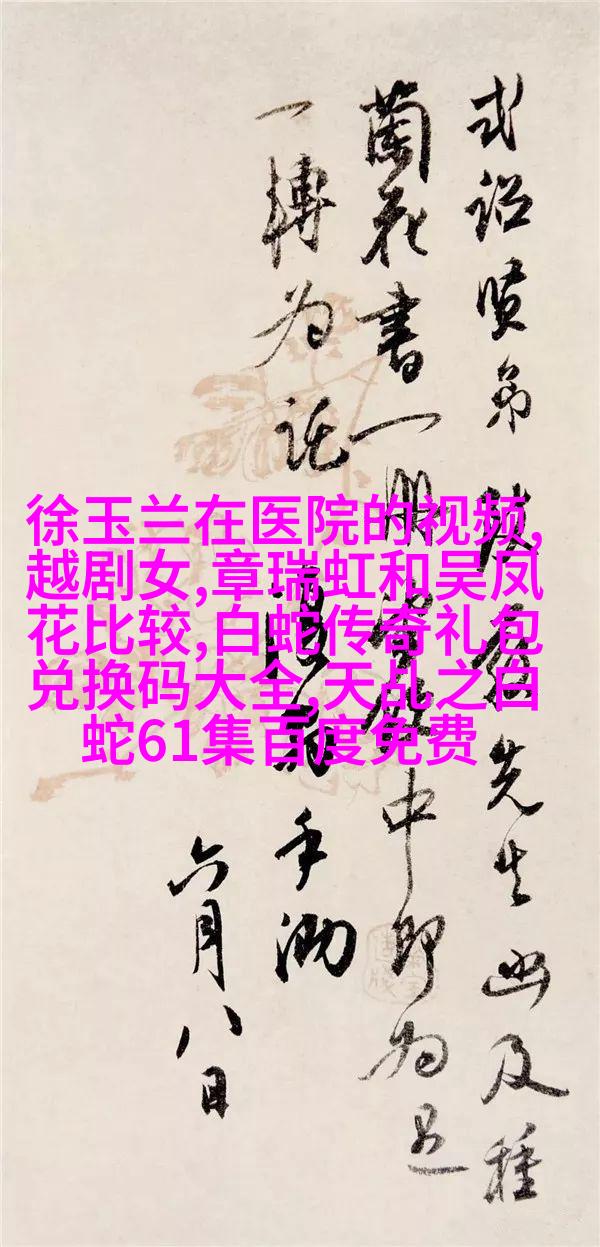 式詔賢弟先生函及種
蘭花書一册中即为
一轉为託手泐
六月八日
徐玉兰在医院的视频,
越剧女,章瑞虹和吴凤
花比较,白蛇传奇礼包
兑换码大全,天乩之白
蛇61集百度免费